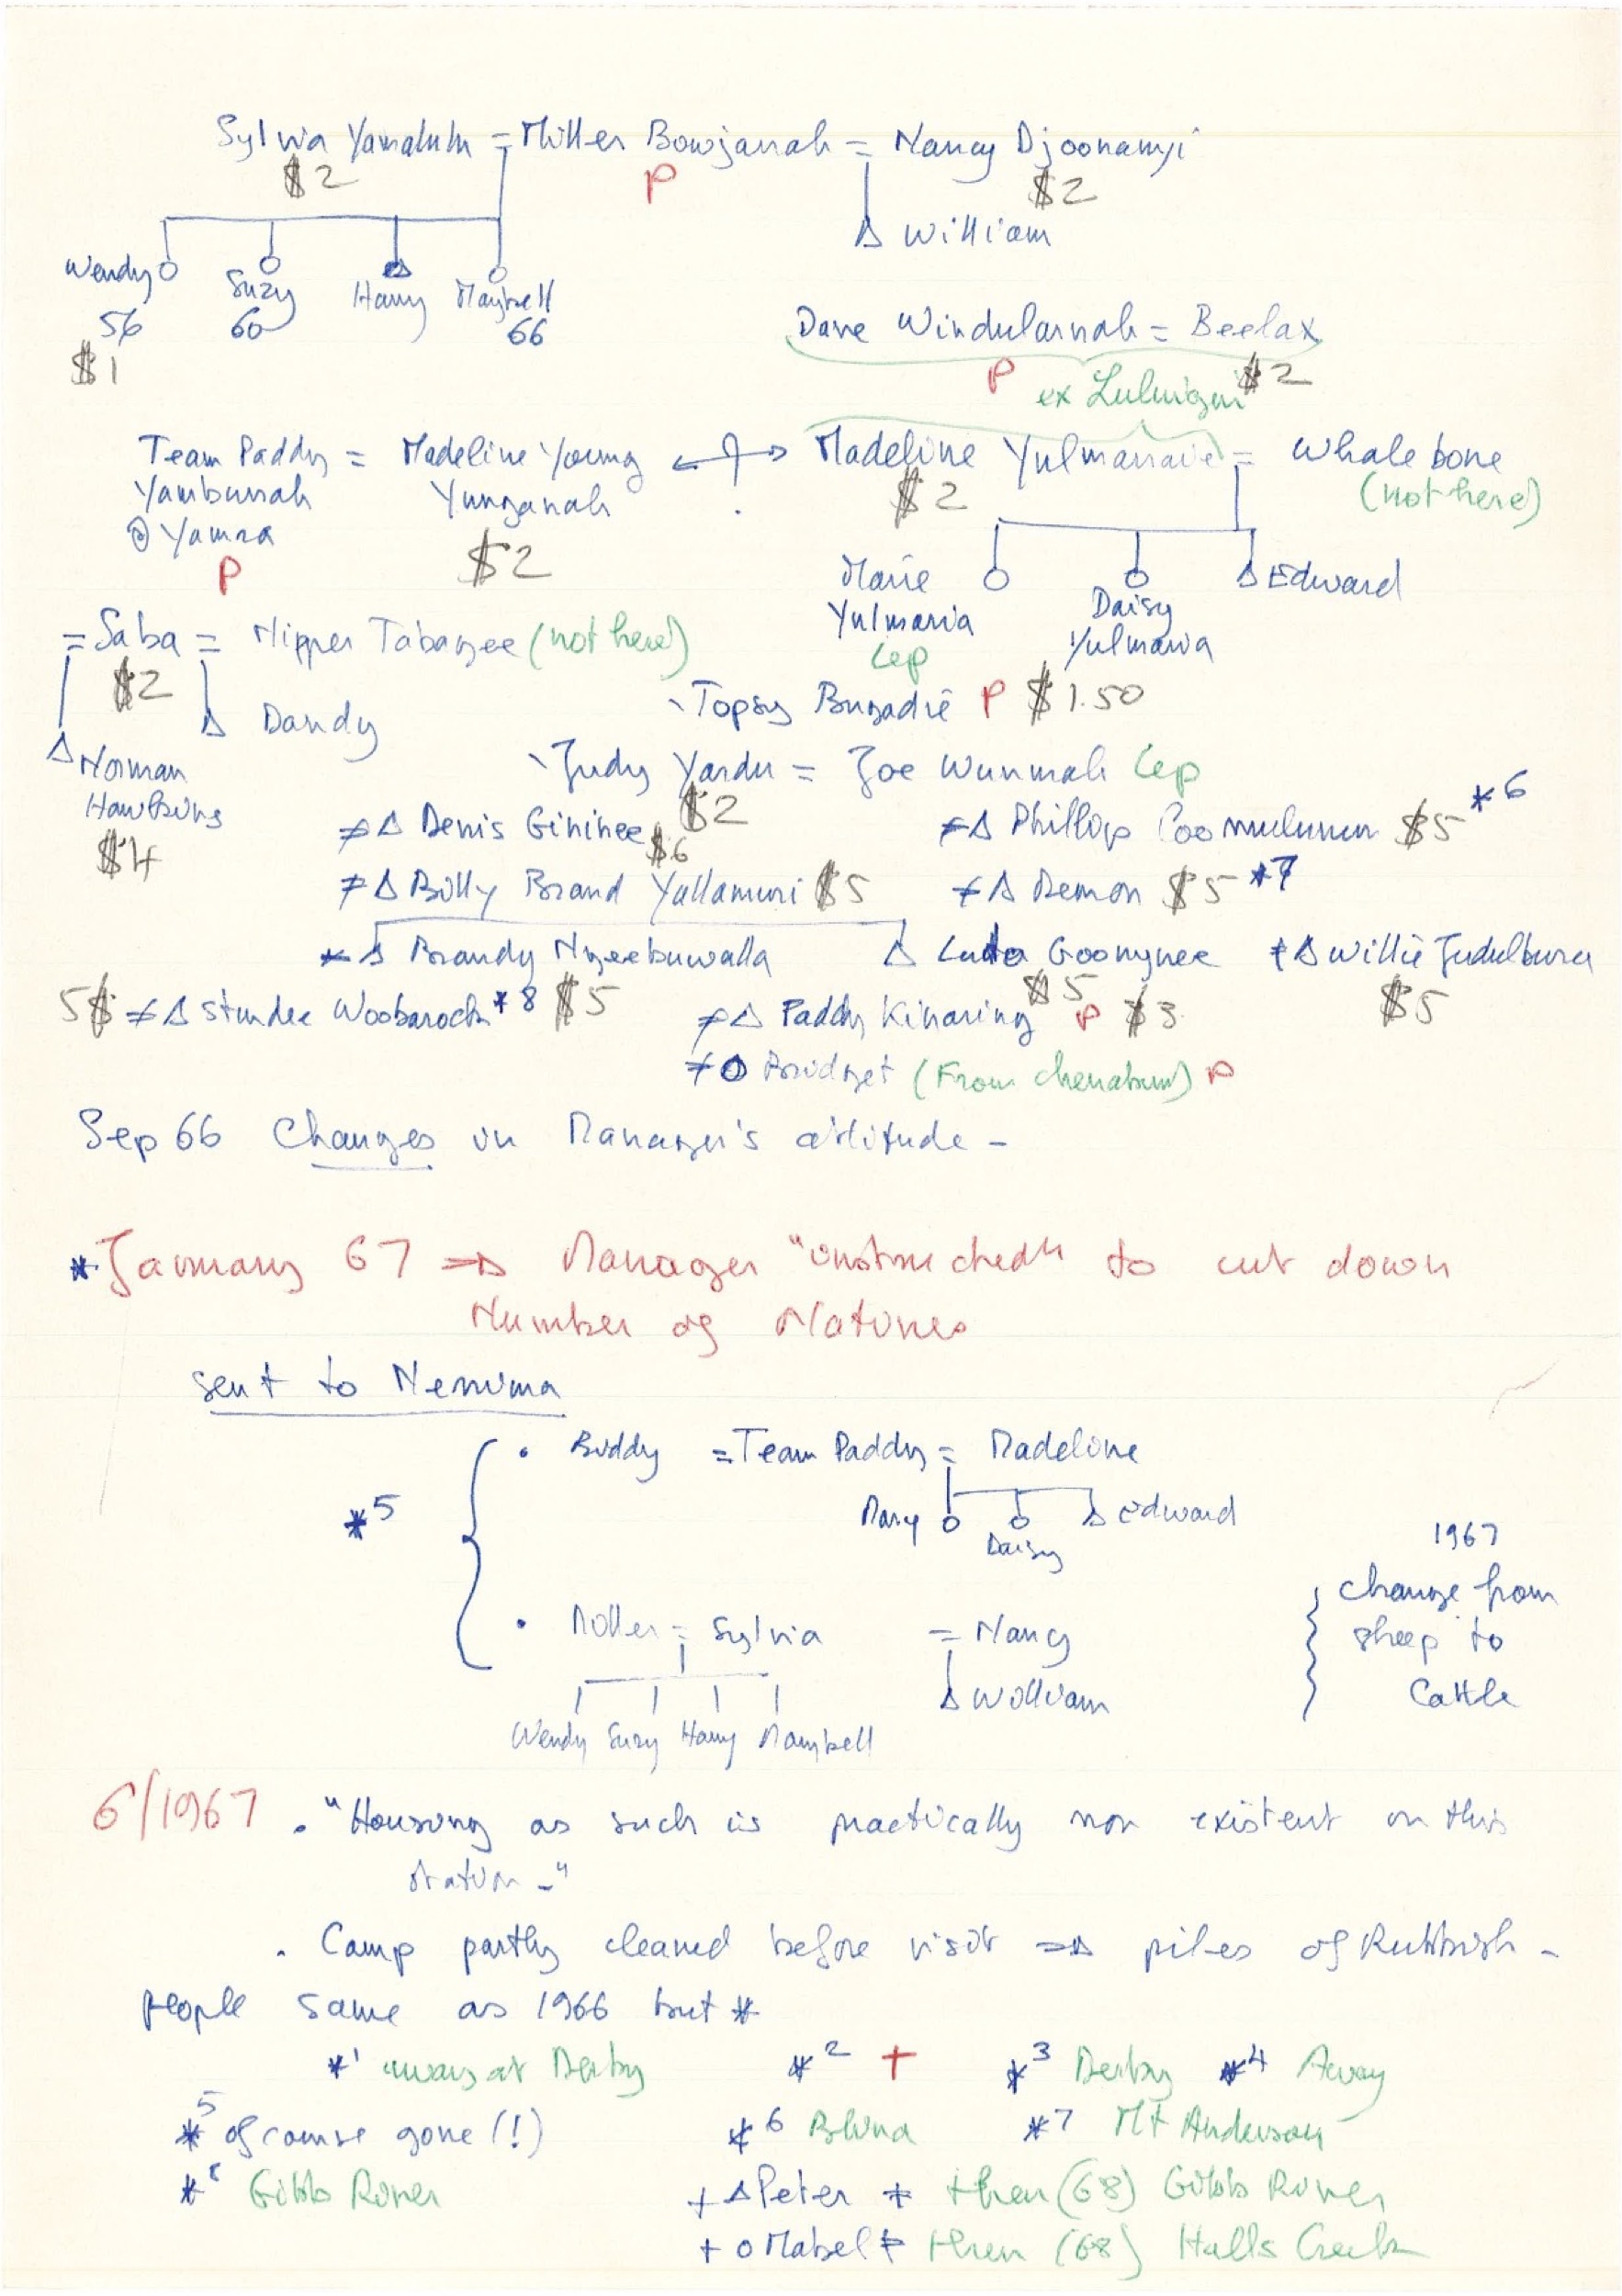 Sylvia Yamalulu = Miller Bowjanah = Nancy Djoonamyi
$2 P $2
△ William
Wendy Suzy Harry Maybell
56 60 66
$1
Dave Windularnah = Beelax
P $2
ex
Team Paddy = Madeline Young ↔ Madeline = Whalebone
Yamburrah Yunganah $2 (not here)
@ Yamra $2
P
Marie ○ ○ △ Edward
Yulmaria Daisy
Lep Yulmaria
= Saba = Nipper Tabagee (not here)
$2
△ Dandy
△ Norman
Hawkins
$4
Topsy P $1.50
Judy Yardu = Joe Wunmah Lep
$2
≠ △ Denis Gininee $6 ≠ △ Phillip $5 *6
≠ △ Billy Brand Yallamuri $5 ≠ △ Demon $5 *7
△ Brandy Ngeebuwalla △ Goonynee $5 ≠ △ Willie $5
5$ ≠ △ Woobaroch *8 $5 ≠ △ Paddy Kinaring P $3
≠ ○ Bridget (From ) P
Sep 66 Changes in Manager's attitude -
* January 67 ⇒ Manager "instructed" to cut down
Number of Natives
sent to Nerrima
*5
• Buddy = Team Paddy = Madeline
Mary ○ ○ △ Edward
Daisy
• Miller = Sylvia = Nancy
△ William
Wendy Suzy Harry Maybell
1967
change from
sheep to
Cattle
6/1967 . "Housing as such is practically non existent on this
station -"
. Camp partly cleaned before visit ⇒ piles of Rubbish -
People same as 1966 but *
*1 away at Derby *2 † *3 Derby *4 Away
*5 of course gone (!) *6 Blina *7 Mt Anderson
*8 Gibb River + △ Peter ≠ then (68) Gibb River
+ ○ Mabel ≠ then (68) Halls Creek